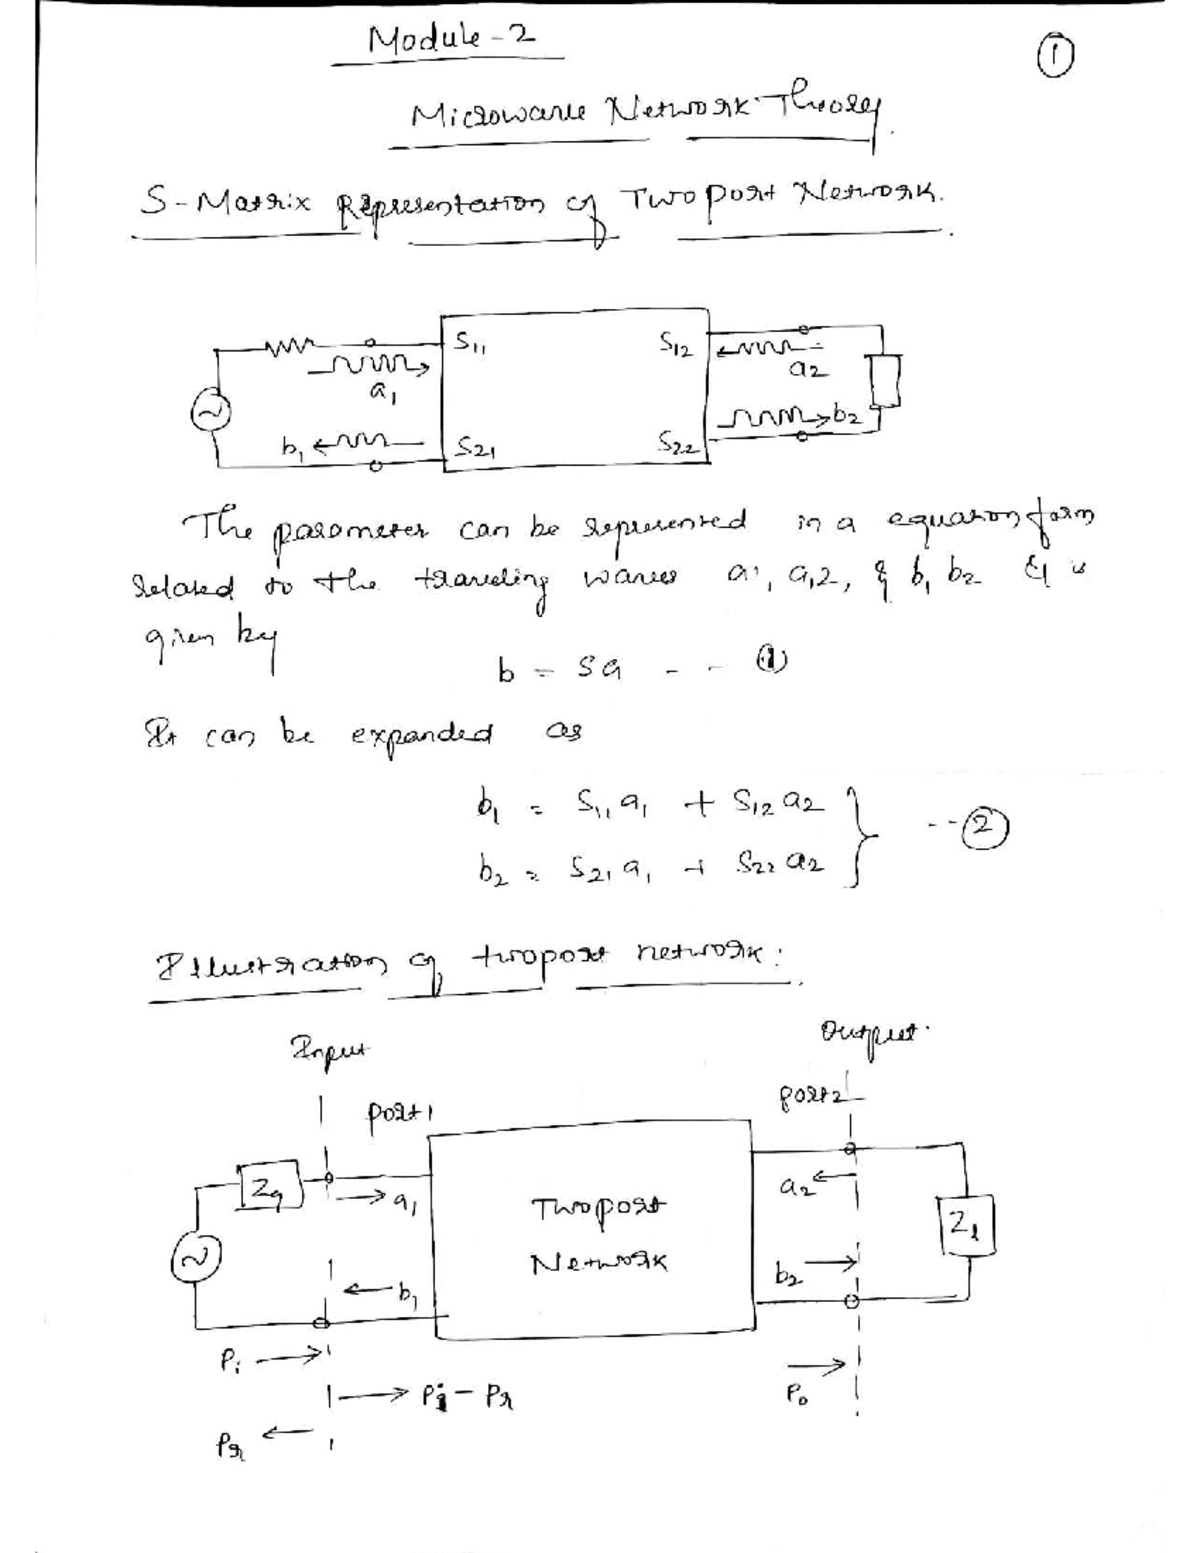 Module-2
①
Microwave Network Theory.
S-Matrix Representation of Two port Network.
S11 S12 a1 a2
b1 S21 S22 b2
The parameter can be represented in a equation form
related to the traveling waves a1, a,2, & b1 b2 & is
given by
b = Sa - - ①
It can be expanded as
b1 = S11 a1 + S12 a2
b2 = S21 a1 + S22 a2 } - - ②
Illustration of twoport network:
Input Output.
port1 port2
Zg a1 Twoport a2 Zl
b1 Network b2
Pi
Pi - Pr Po
Pr